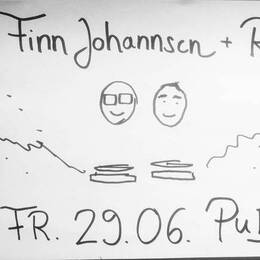 Finn Johannsen +
FR. 29.06.